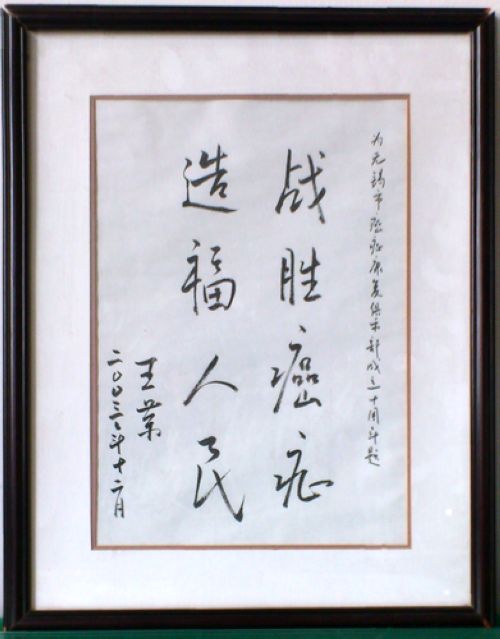 为无锡市癌症康复俱乐部成立十周年题
战胜癌症
造福人民
王荣
二〇〇三年十二月